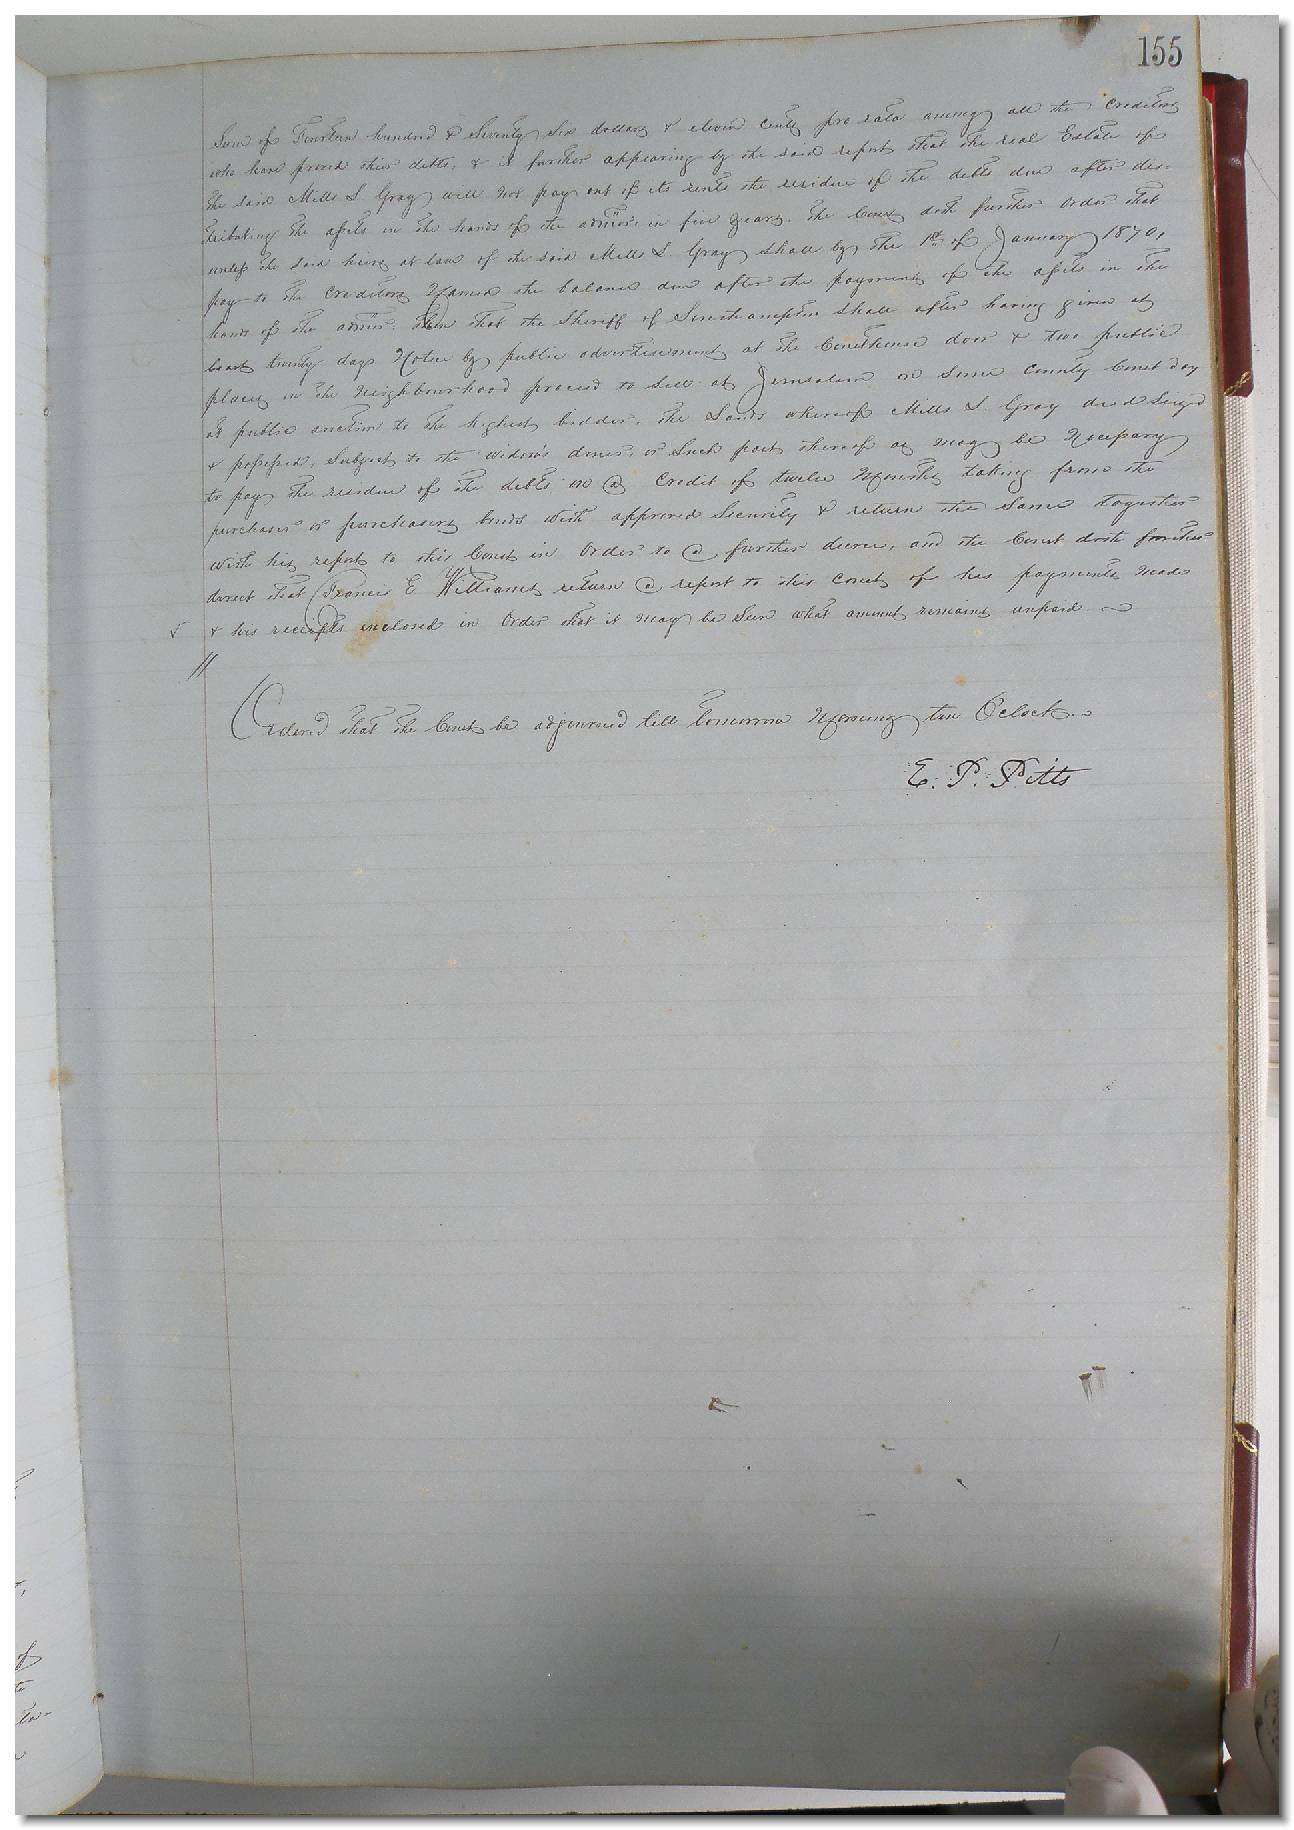 155
Sum of Fourteen hundred & Seventy Six dollars & eleven cents pro rata among all the Creditors
who have proved their debts, & it further appearing by the said report that the real Estate of
the said Mills L Gray will not pay out of its rents the residue of the debts due after dis-
tributing the assets in the hands of the admor. in five years. The Court doth further Order that
unless the said heirs at law of the said Mills L. Gray shall by the 1st of January 1870,
pay to the Creditors Named the balance due after the payment of the assets in the
hands of the admor. then that the Sheriff of Southampton shall after having given at
least twenty days Notice by public advertisement at the Courthouse door & two public
places in the Neighbourhood proceed to Sell at Jerusalem on Some County Court day
at public auction to the highest bidder, the Lands whereof Mills L Gray died Seized
& possessed, Subject to the widow's dower, or Such part thereof as may be Necessary
to pay the residue of the debts on @ Credit of twelve Months taking from the
purchaser or purchasers bonds with approved Security & return the Same together
with his report to this Court in Order to @ further decree, and the Court doth further
direct that Francis E Williams return @ report to this Court of his payments made
& his receipts inclosed in Order that it may be Seen what amount remains unpaid
Ordered that the Court be adjourned till tomorrow Morning ten Oclock.
E. P. Pitts